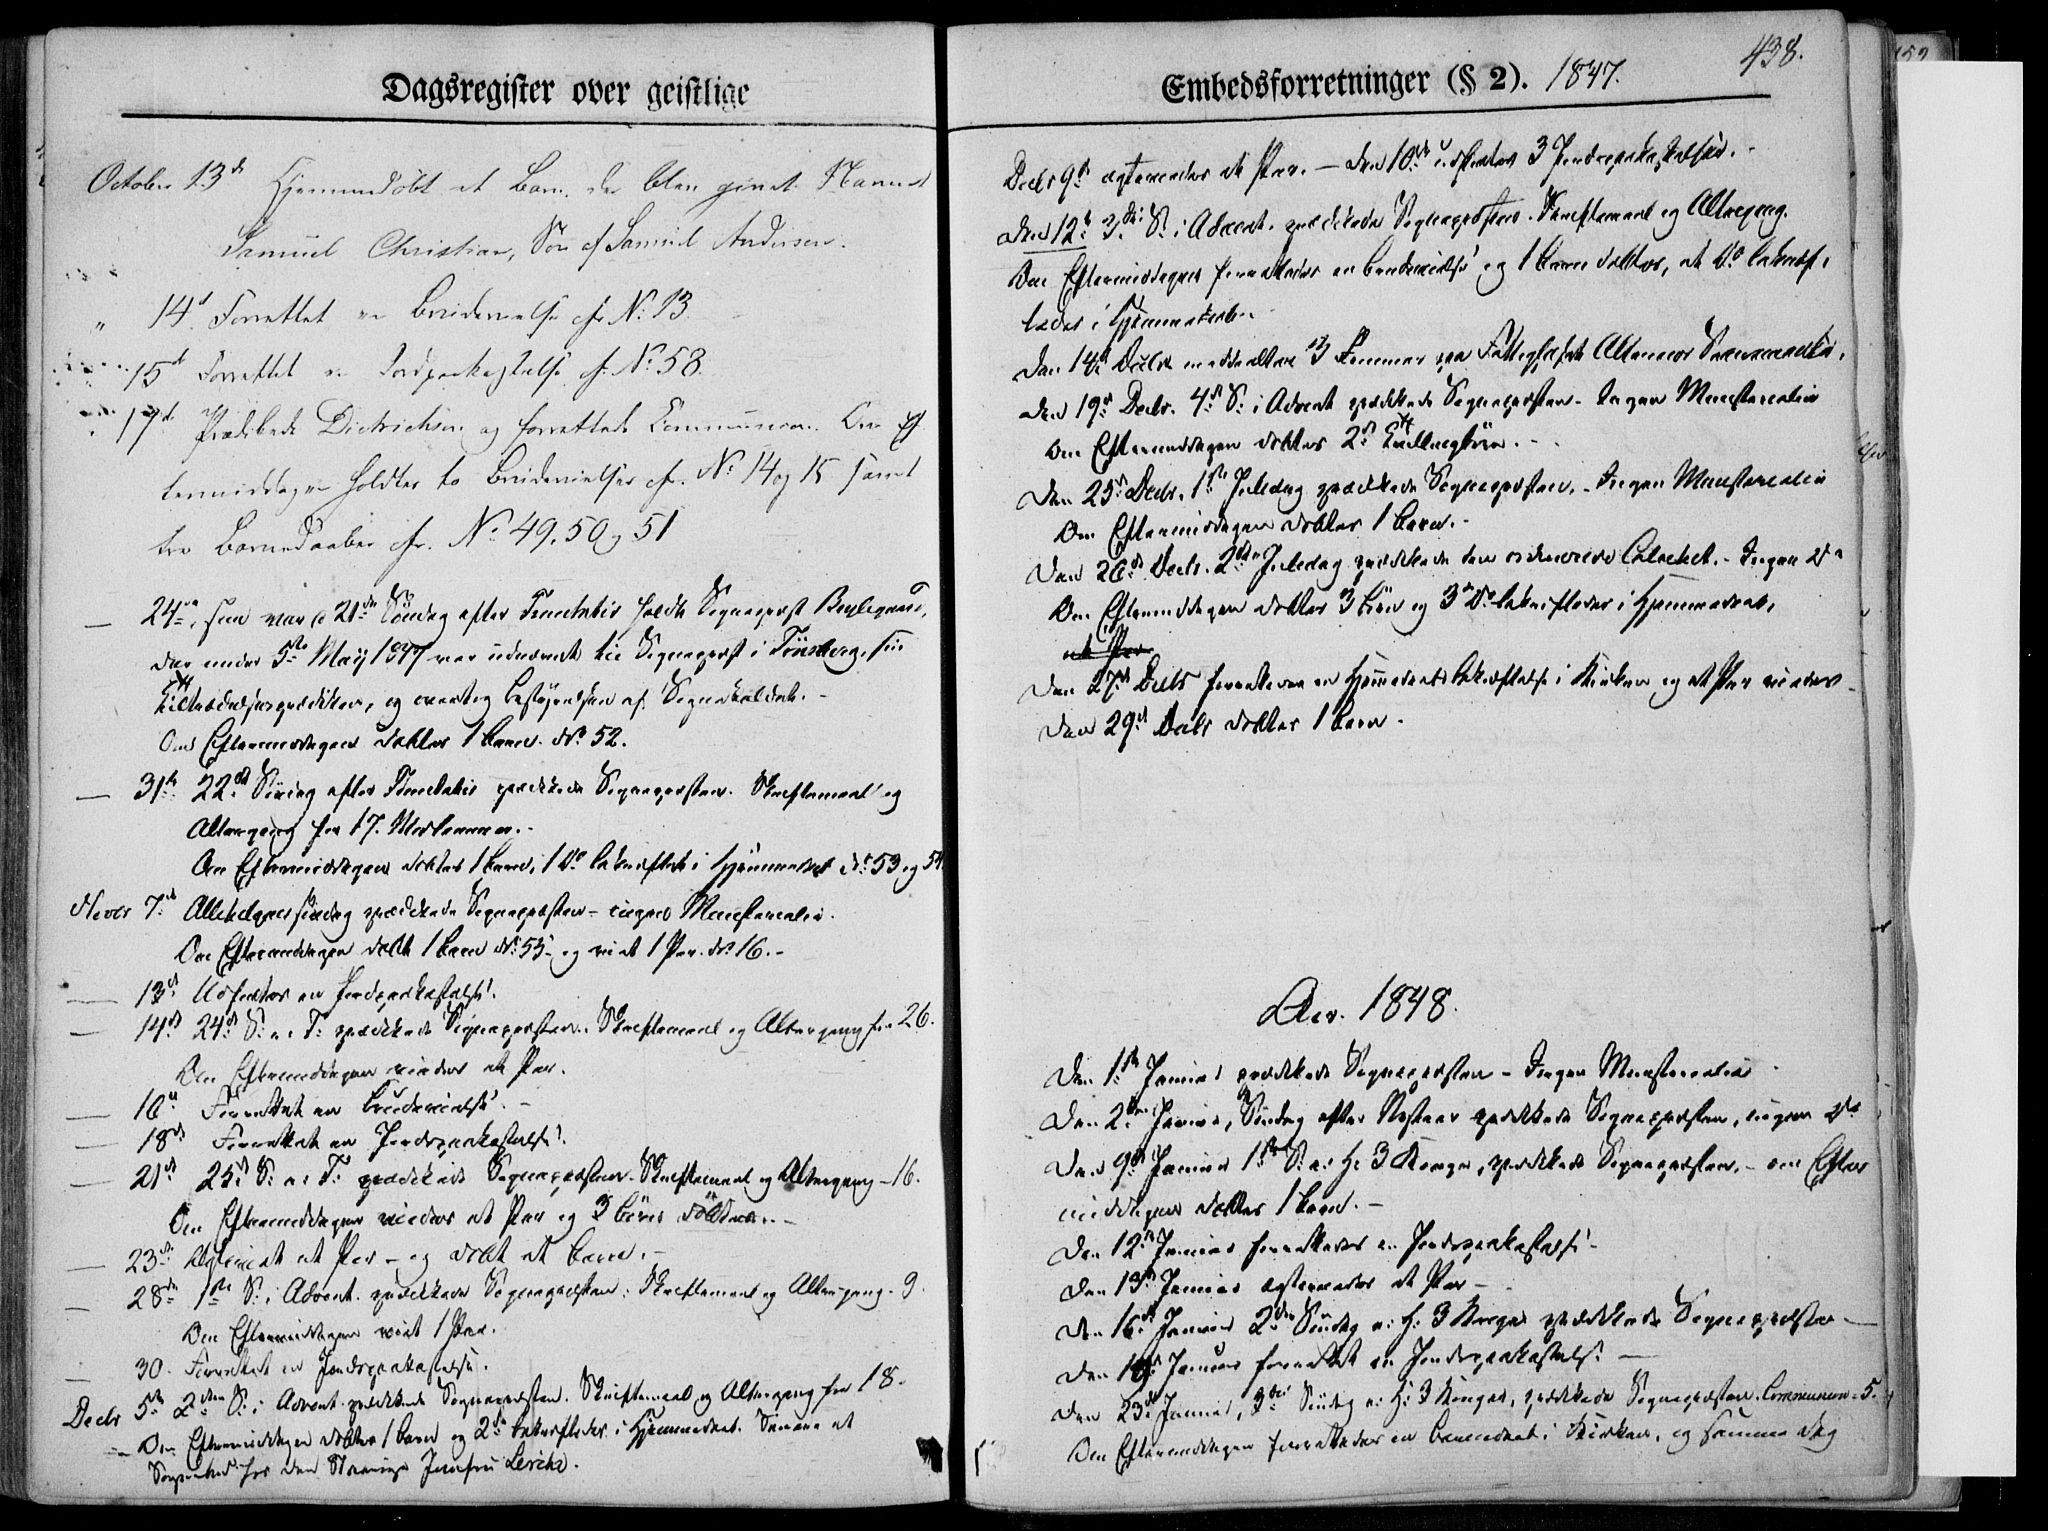 Dagsregister over geistlige
October 13de Hjemmedøbt et Barn, der blev givet Navnet
Samuel Christian, Søn af Samuel Andersen.
" 14d. Forrettet en Brudevielse cfr No 13.
15de Forrettet en Jordpaakastelse cfr No 58
17de Prædikede Dietrichson og forrettede Communion. Om Ef
termiddagen holdtes to Brudevielser cfr. No 14 og 15 samt
tre Barnedaaber cfr. No 49, 50 og 51
— 24de, som var d 21de Søndag efter Trinitatis holdt Sognepræst
der under 5te May 1847 var udnævnt til Sognepræst i Tönsberg, sin
Tiltrædelsesprædiken, og overtog Bestyrelsen af Sognekaldet. -
Om Eftermiddagen döbtes 1 Barn. No 52.
— 31te 22de Söndag efter Trinitatis prædikede Sognepræsten. Skriftemaal og
Altergang for 17.
Om Eftermiddagen döbtes 1 Barn, 1 do bekræftet i Hjemmedaab No 53 og 54
Novbr 7de Allehelgensöndag prædikede Sognepræsten - ingen Ministerialia.
Om Eftermiddagen döbt 1 Barn No 55 - og viet 1 Par. No 16. -
— 13de Udfortes en Jordpaakastelse.
— 14de 24de S. e. T. prædikede Sognepræsten. Skriftemaal og Altergang for 26.
Om Eftermiddagen viedes et Par.
— 16de Forrettet en Brudevielse. -
— 18de Forrettet en Jordpaakastelse.
— 21de 25de S. e. T. prædikede Sognepræsten. Skriftemaal og Altergang - 16.
Om Eftermiddagen viedes et Par og 3 Börn döbtes. -
— 23de et Par - og döbt et Barn. -
— 28de 1ste S. i Advent prædikede Sognepræsten. Skriftemaal og Altergang. 9.
Om Eftermiddagen viet 1 Par.
— 30. Forrettet en Jordpaakastelse.
Decbr 5te 2den S. i Advent prædikede Sognepræsten. Skriftemaal og Altergang for 18.
Om Eftermiddagen döbtes 1 Barn og 2de bekræftedes i Hjemmedaab. Samme et
Sognebud hos den Jomfru Lerche.
Embedsforretninger (§ 2). 1847.
438.
Decbr 9de et Par. - den 10de udfortes 3 Jordpaakastelser. -
den 12te 3die S. i Advent. prædikede Sognepræsten. Skriftemaal og Altergang.
Om Eftermiddagen forrettedes en Brudevielse og 1 Barn döbtes, et do bekræf-
tedes i Hjemmedaab.
Den 14de Decbr meddeeltes 3 Lemmer paa Fattighuset Alterens Sacramente.
Den 19de Decbr. 4de S. i Advent prædikede Sognepræsten - Ingen Ministerialia
Om Eftermiddagen döbtes 2de Tvillingbörn. -
Den 25de Decbr. 1ste Juledag prædikede Sognepræsten. - Ingen Ministerialia
Om Eftermiddagen döbtes 1 Barn. -
Den 26de Decbr. 2den Juledag prædikede den residerende Capellan. - Ingen do
Om Eftermiddagen döbtes 3 Börn og 3 do bekræftedes i Hjemmedaab,
et Par
Den 27de Decbr forrettedes en Hjemmedaabs Bekræftelse i Kirken og et Par viedes -
Den 29de Decbr döbtes 1 Barn -
Aar. 1848.
Den 1ste Januar prædikede Sognepræsten - Ingen Ministerialia
Den 2den Januar, Söndag efter Nytaar prædikede Sognepræsten, ingen do
Den 9de Januar 1ste S. e. H. 3 Konger, prædikede Sognepræsten, - om Efter
middagen döbtes 1 Barn. -
Den 12te Januar forrettedes en Jordpaakastelse -
Den 13de Januar et Par -
Den 16de Januar 2den Söndag e. H. 3 Konger prædikede Sognepræsten -
Den Januar forrettet en Jordpaakastelse -
Den 23de Januar, 3die Söndag e. H. 3 Konger, prædikede Sognepræsten. Communion - 5.
Om Eftermiddagen forrettedes en Barnedaab i Kirken, og samme Dag